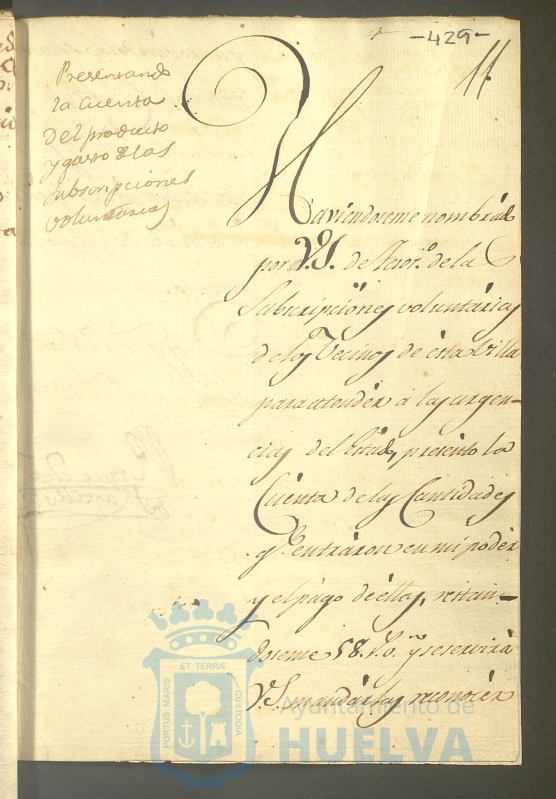 -429-
11.
Presentando
la cuenta
del producto
y gasto de las
subscripciones
voluntarias
Haviendoseme nombrado
por V.S. de Tesor.o de la
Subscripciones voluntarias
de los Vecinos de esta Villa
para atender à las urgen-
cias del Estado, presento la
Cuenta de las Cantidades
q.e entraron en mi poder
y el pago de ellas, restan-
doseme 58. r.v.n y se servirà
V.S. mandarlas reconocer
ET TERRÆ
PORTUS MARIS
CUSTODIA
Ayuntamiento de
HUELVA